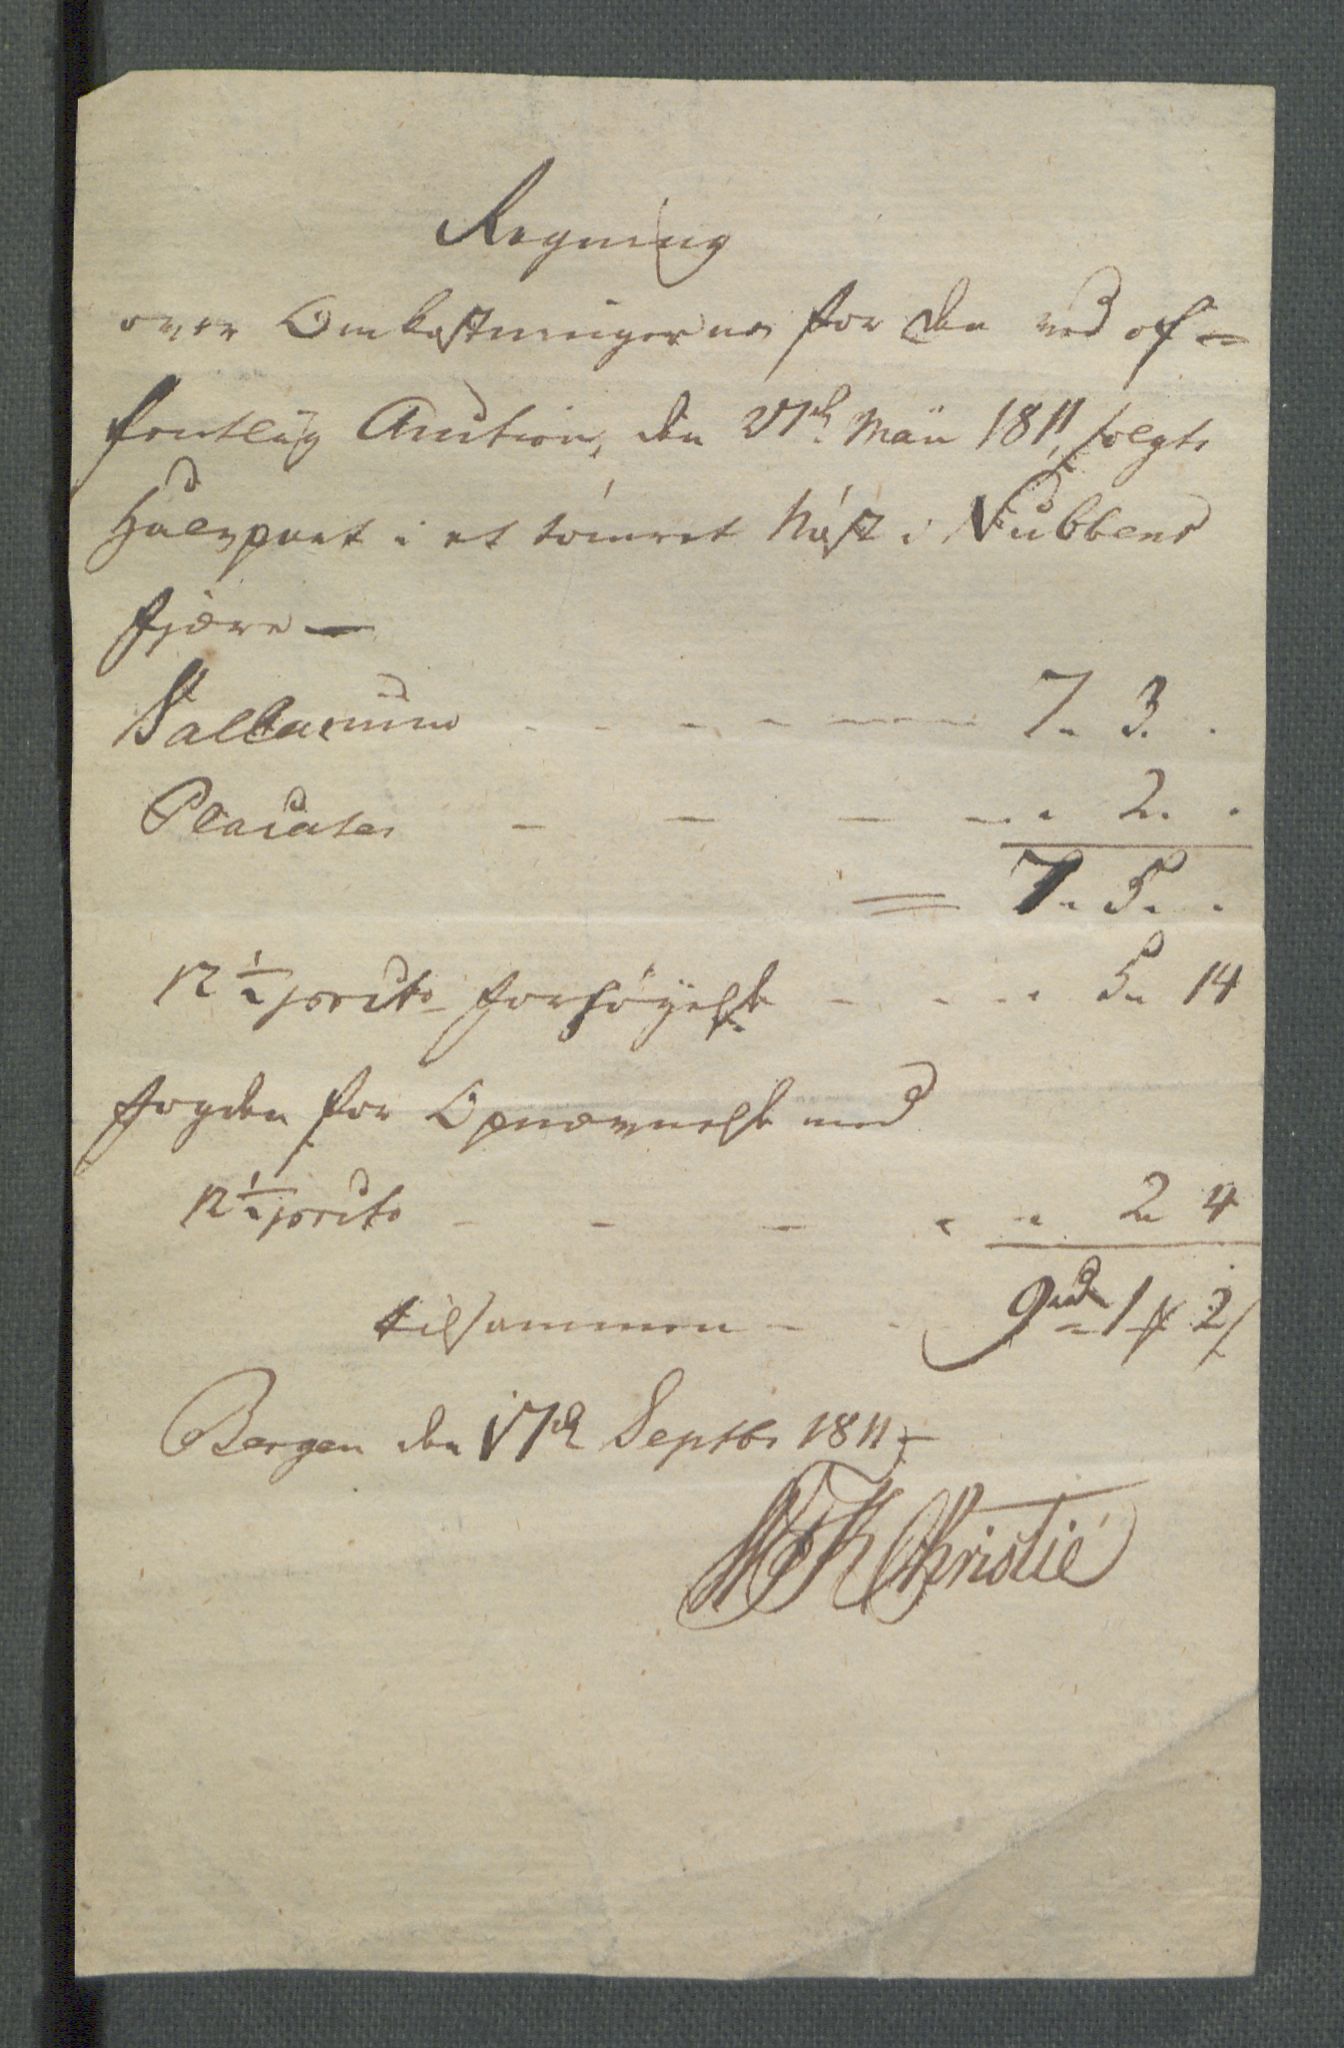 Regning
over Omkostningerne for den ved of-
fentlig Auction, den 21de Maii 1811, solgte
Halvpart i et tømret Nøst i Nubbens
fjære —
Sallarium - - - - 7. 3. .
Placater - - - - . 2. .
= 7. 5. .
12 1/2 procto forhøyelse - - . 5. 14
Fogden for Opnævnelse med
12 1/2 procto - - - . . 2. 4
tilsammen - - 9rd 1 # 2 s
Bergen den 17de Septbr 1811
WFK Christie